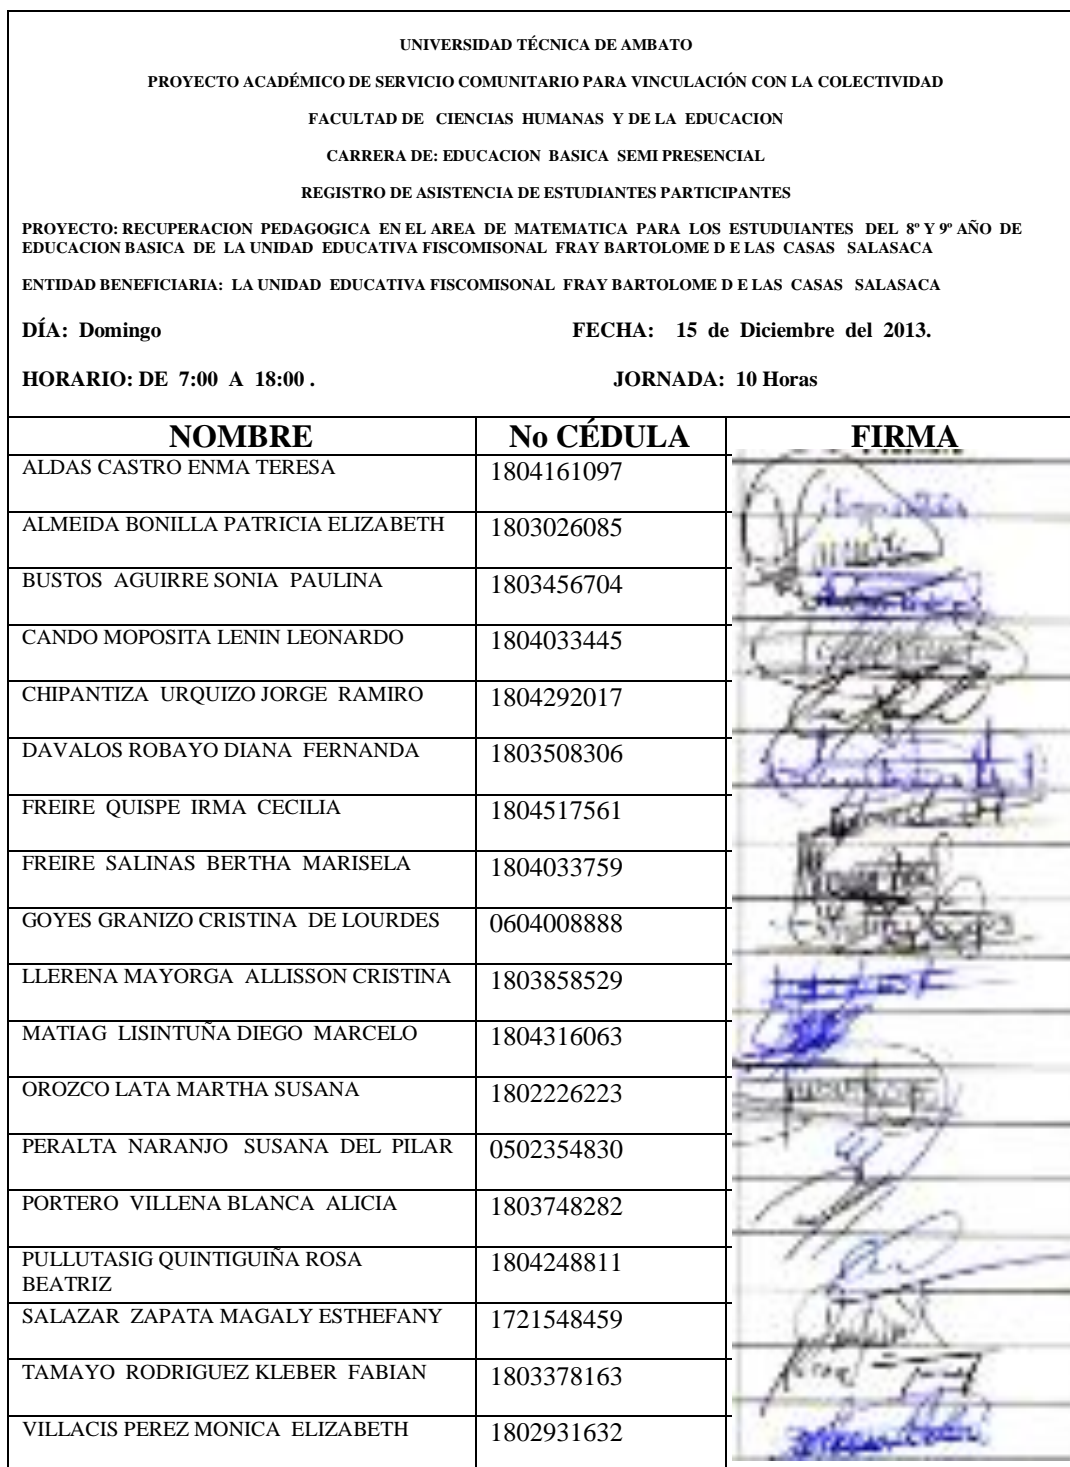 UNIVERSIDAD TÉCNICA DE AMBATO
PROYECTO ACADÉMICO DE SERVICIO COMUNITARIO PARA VINCULACIÓN CON LA COLECTIVIDAD
FACULTAD DE CIENCIAS HUMANAS Y DE LA EDUCACION
CARRERA DE: EDUCACION BASICA SEMI PRESENCIAL
REGISTRO DE ASISTENCIA DE ESTUDIANTES PARTICIPANTES
PROYECTO: RECUPERACION PEDAGOGICA EN EL AREA DE MATEMATICA PARA LOS ESTUDUIANTES DEL 8º Y 9º AÑO DE
EDUCACION BASICA DE LA UNIDAD EDUCATIVA FISCOMISONAL FRAY BARTOLOME D E LAS CASAS SALASACA
ENTIDAD BENEFICIARIA: LA UNIDAD EDUCATIVA FISCOMISONAL FRAY BARTOLOME D E LAS CASAS SALASACA
DÍA: Domingo FECHA: 15 de Diciembre del 2013.
HORARIO: DE 7:00 A 18:00 . JORNADA: 10 Horas
NOMBRE No CÉDULA FIRMA
ALDAS CASTRO ENMA TERESA 1804161097
ALMEIDA BONILLA PATRICIA ELIZABETH 1803026085
BUSTOS AGUIRRE SONIA PAULINA 1803456704
CANDO MOPOSITA LENIN LEONARDO 1804033445
CHIPANTIZA URQUIZO JORGE RAMIRO 1804292017
DAVALOS ROBAYO DIANA FERNANDA 1803508306
FREIRE QUISPE IRMA CECILIA 1804517561
FREIRE SALINAS BERTHA MARISELA 1804033759
GOYES GRANIZO CRISTINA DE LOURDES 0604008888
LLERENA MAYORGA ALLISSON CRISTINA 1803858529
MATIAG LISINTUÑA DIEGO MARCELO 1804316063
OROZCO LATA MARTHA SUSANA 1802226223
PERALTA NARANJO SUSANA DEL PILAR 0502354830
PORTERO VILLENA BLANCA ALICIA 1803748282
PULLUTASIG QUINTIGUIÑA ROSA 1804248811
BEATRIZ
SALAZAR ZAPATA MAGALY ESTHEFANY 1721548459
TAMAYO RODRIGUEZ KLEBER FABIAN 1803378163
VILLACIS PEREZ MONICA ELIZABETH 1802931632